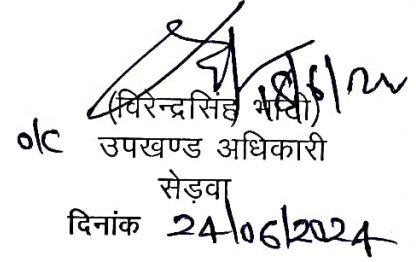 (विरेन्द्रसिंह भाटी)
o/c उपखण्ड अधिकारी
सेड़वा
दिनांक 24/06/2024